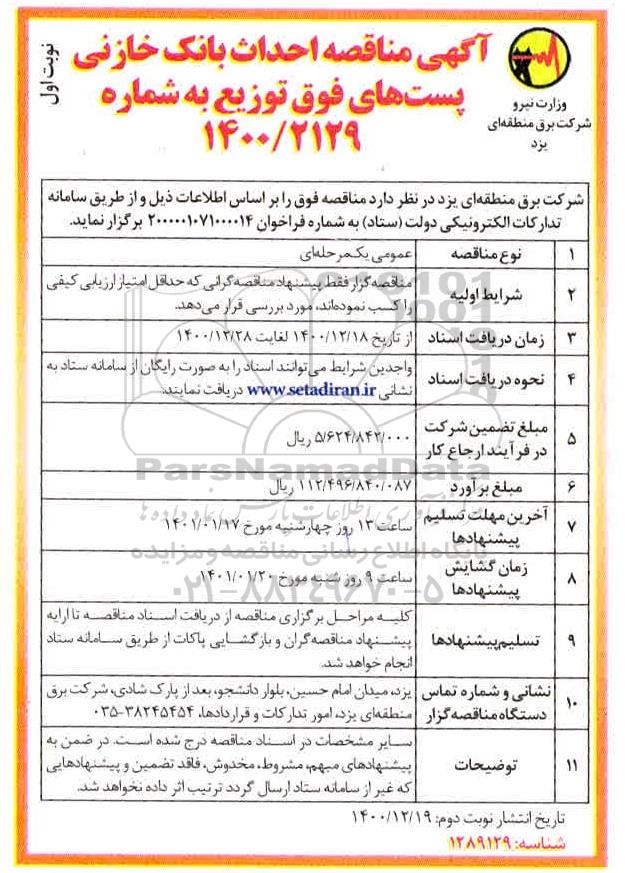 نوبت اول
آگهی مناقصه احداث بانک خازنی
پست‌های فوق توزیع به شماره
۱۴۰۰/۲۱۲۹
وزارت نیرو
شرکت برق منطقه‌ای
یزد
شرکت برق منطقه‌ای یزد در نظر دارد مناقصه فوق را بر اساس اطلاعات ذیل و از طریق سامانه
تدارکات الکترونیکی دولت (ستاد) به شماره فراخوان ۲۰۰۰۰۰۱۰۷۱۰۰۰۰۱۴ برگزار نماید.
۱ نوع مناقصه عمومی یکمرحله‌ای
۲ شرایط اولیه مناقصه‌گزار فقط پیشنهاد مناقصه‌گرانی که حداقل امتیاز ارزیابی کیفی
را کسب نموده‌اند، مورد بررسی قرار می‌دهد.
۳ زمان دریافت اسناد از تاریخ ۱۴۰۰/۱۲/۱۸ لغایت ۱۴۰۰/۱۲/۲۸
۴ نحوه دریافت اسناد واجدین شرایط می‌توانند اسناد را به صورت رایگان از سامانه ستاد به
نشانی www.setadiran.ir دریافت نمایند.
۵ مبلغ تضمین شرکت
در فرآیند ارجاع کار ۵/۶۲۴/۸۴۲/۰۰۰ ریال
۶ مبلغ برآورد ۱۱۲/۴۹۶/۸۴۰/۰۸۷ ریال
۷ آخرین مهلت تسلیم
پیشنهادها ساعت ۱۳ روز چهارشنبه مورخ ۱۴۰۱/۰۱/۱۷
۸ زمان گشایش
پیشنهادها ساعت ۹ روز شنبه مورخ ۱۴۰۱/۰۱/۲۰
۹ تسلیم پیشنهادها کلیه مراحل برگزاری مناقصه از دریافت اسناد مناقصه تا ارایه
پیشنهاد مناقصه‌گران و بازگشایی پاکات از طریق سامانه ستاد
انجام خواهد شد.
۱۰ نشانی و شماره تماس
دستگاه مناقصه‌گزار یزد، میدان امام حسین، بلوار دانشجو، بعد از پارک شادی، شرکت برق
منطقه‌ای یزد، امور تدارکات و قراردادها، ۳۸۲۴۵۴۵۴-۰۳۵
۱۱ توضیحات سایر مشخصات در اسناد مناقصه درج شده است. در ضمن به
پیشنهادهای مبهم، مشروط، مخدوش، فاقد تضمین و پیشنهادهایی
که غیر از سامانه ستاد ارسال گردد ترتیب اثر داده نخواهد شد.
تاریخ انتشار نوبت دوم: ۱۴۰۰/۱۲/۱۹
شناسه: ۱۲۸۹۱۲۹
ParsNamadData
پایگاه اطلاع رسانی مناقصه و مزایده
۰۲۱-۸۸۳۴۹۶۷۰-۵